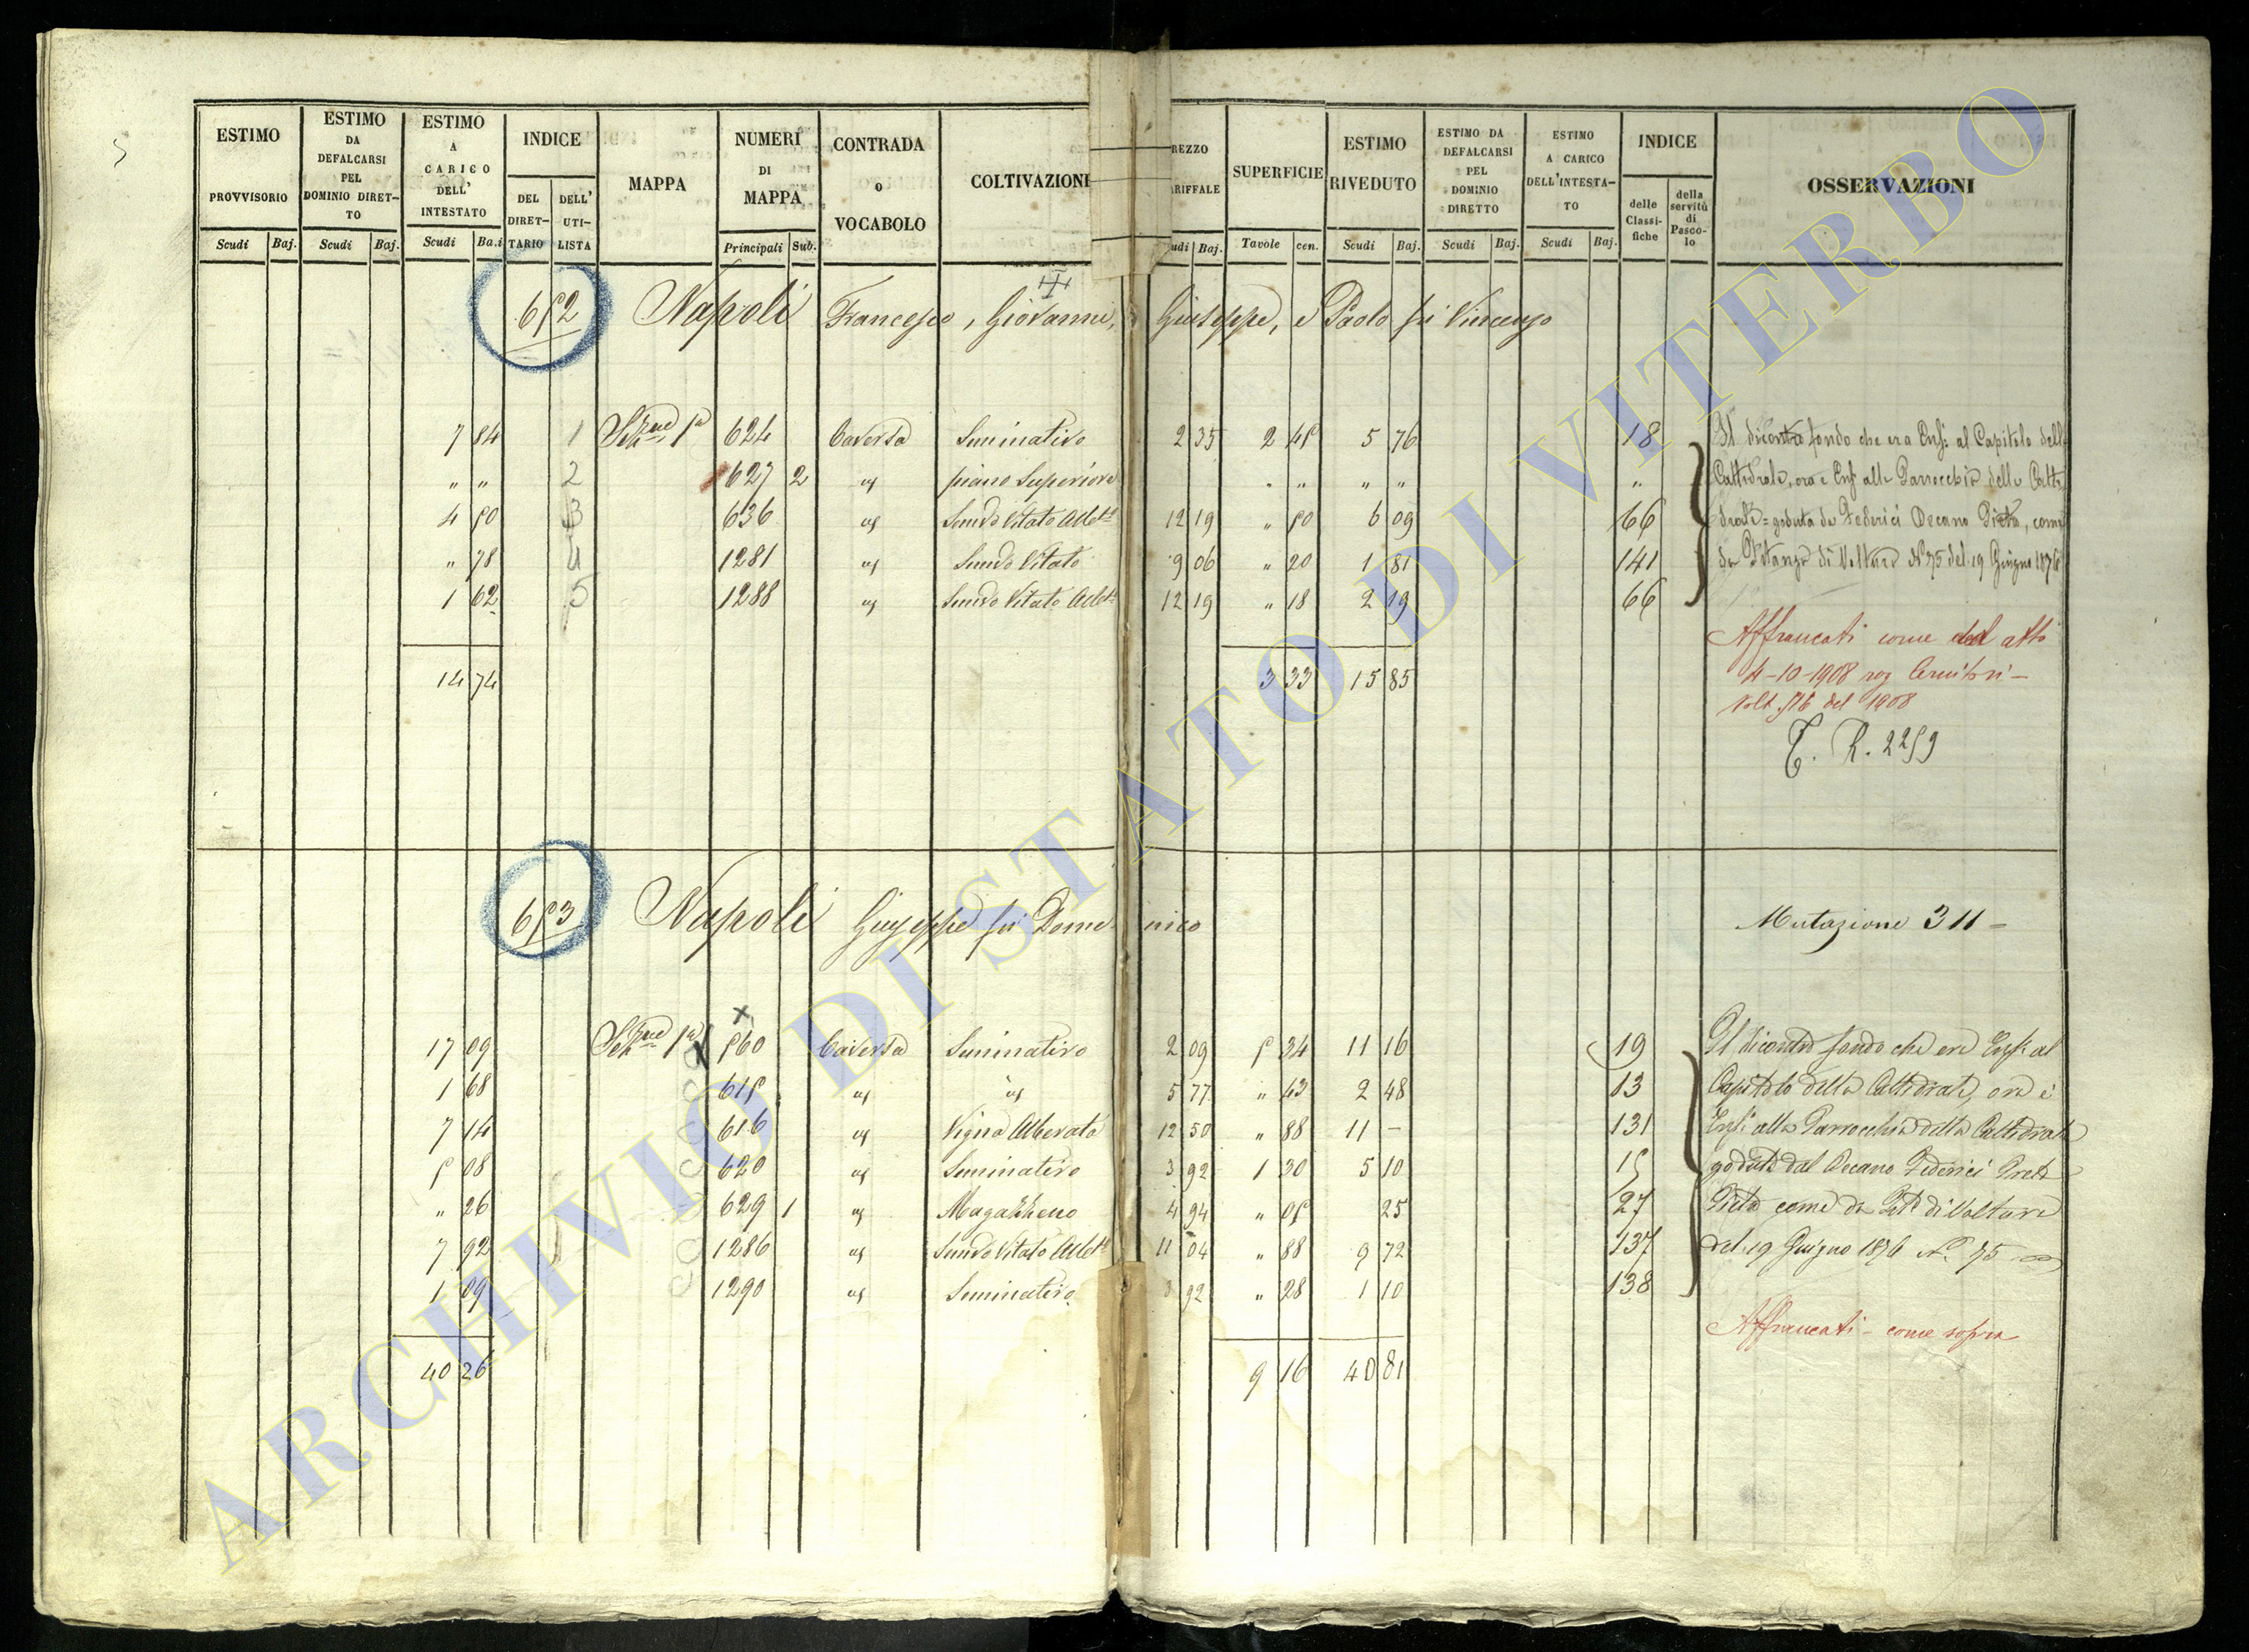 ESTIMO PROVVISORIO
Scudi Baj.
ESTIMO DA DEFALCARSI PEL DOMINIO DIRET-TO
Scudi Baj.
ESTIMO A CARICO DELL' INTESTATO
Scudi Ba.i
INDICE
DEL DIRET-TARIO
DELL' UTI-LISTA
MAPPA
NUMERI DI MAPPA
Principali Sub.
CONTRADA O VOCABOLO
COLTIVAZIONI
REZZO RIFFALE
udi Baj.
SUPERFICIE
Tavole cen.
ESTIMO RIVEDUTO
Scudi Baj.
ESTIMO DA DEFALCARSI PEL DOMINIO DIRETTO
Scudi Baj.
ESTIMO A CARICO DELL'INTESTA-TO
Scudi Baj.
INDICE
delle Classi-fiche
della servitù di Pasco-lo
OSSERVAZIONI
652 Napoli Francesco, Giovanni, Giuseppe, e Paolo fu Vincenzo
7 84 1 Sezne 1a 624 Caversa Seminativo 2 35 2 45 5 76 18
" " 2 627 2 " piano Superiore " " " " "
4 50 3 636 " Semvo Vitato Albto 12 19 " 50 6 09 66
" 78 4 1281 " Semvo Vitato 9 06 " 20 1 81 141
1 62 5 1288 " Semvo Vitato Albto 12 19 " 18 2 19 66
14 74 3 33 15 85
Il dicontro fondo che era Enf: al Capitolo della
Cattedrale, ora è Enf: alla Parrocchia della Catte
drale = goduta da Federici Decano Pietro, come
da Istanza di Voltura N° 75 del 19 Giugno 1876
Affrancati come dal atto
4-10-1908 rog
Volt 516 del 1908
T. R. 2259
653 Napoli Giuseppe fu Domenico
Mutazione 311 -
17 09 Sezne 1a 560 Caversa Seminativo 2 09 5 34 11 16 19
1 68 615 " " 5 77 " 43 2 48 13
7 14 616 " Vigna Alberata 12 50 " 88 11 - 131
5 08 620 " Seminativo 3 92 1 30 5 10 15
" 26 629 1 " Magazzeno 4 94 " 05 25 27
7 92 1286 " Semvo Vitato Albto 11 04 " 88 9 72 137
1 09 1290 " Seminativo 3 92 " 28 1 10 138
40 26 9 16 40 81
Il dicontro fondo che era Enf: al
Capitolo della Cattedrale, ora è
Enf: alla Parrocchia della Cattedrale
goduta dal Decano Federici
come da di Volture
del 19 Giugno 1876 N° 75
Affrancati - come sopra
ARCHIVIO DI STATO DI VITERBO